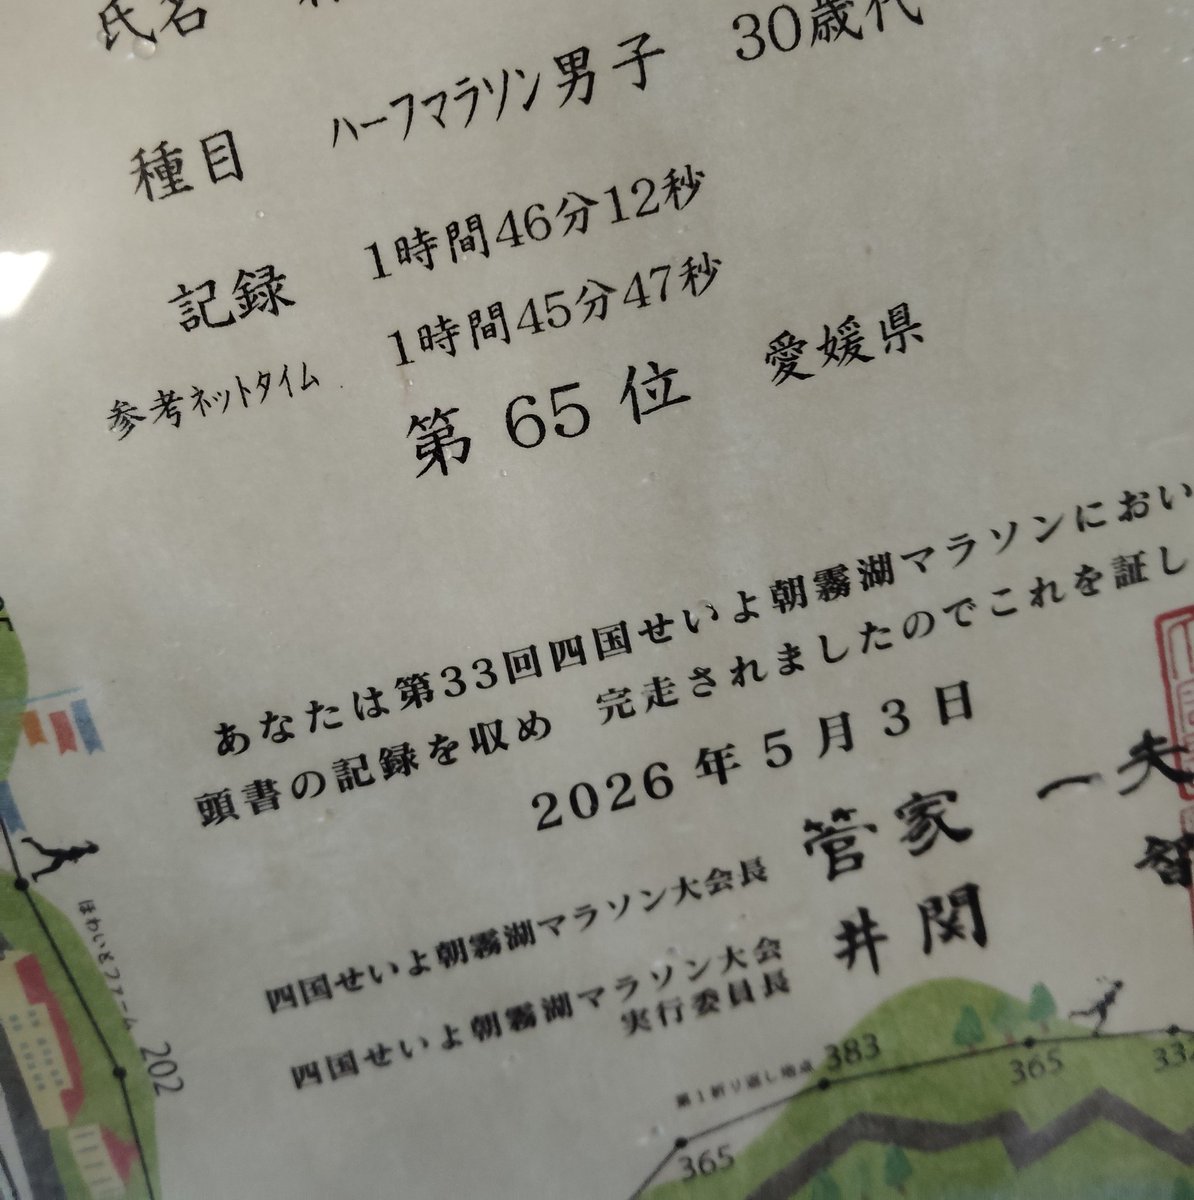 氏名
種目 ハーフマラソン男子 30歳代
記録 1時間46分12秒
参考ネットタイム 1時間45分47秒
第 65 位 愛媛県
あなたは第33回四国せいよ朝霧湖マラソンにおい
頭書の記録を収め 完走されましたのでこれを証し
2026年5月3日
四国せいよ朝霧湖マラソン大会長 管家 一夫
四国せいよ朝霧湖マラソン大会
実行委員長 井関 智
ほわいとファーム 202
第1折り返し地点 383
365
365